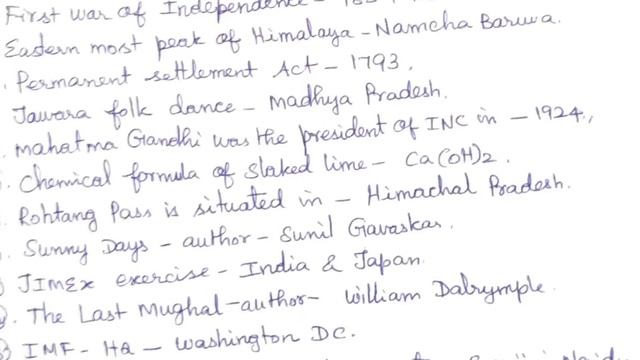 First war of Independence -
Eastern most peak of Himalaya - Namcha Barwa.
Permanent settlement Act - 1793.
Jawara folk dance - Madhya Pradesh.
Mahatma Gandhi was the president of INC in - 1924,
Chemical formula of slaked lime - Ca(OH)2.
Rohtang Pass is situated in - Himachal Pradesh.
Sunny Days - author - Sunil Gavaskar.
JIMEX exercise - India & Japan.
The Last Mughal - author - William Dalrymple.
IMF - HQ - Washington DC.